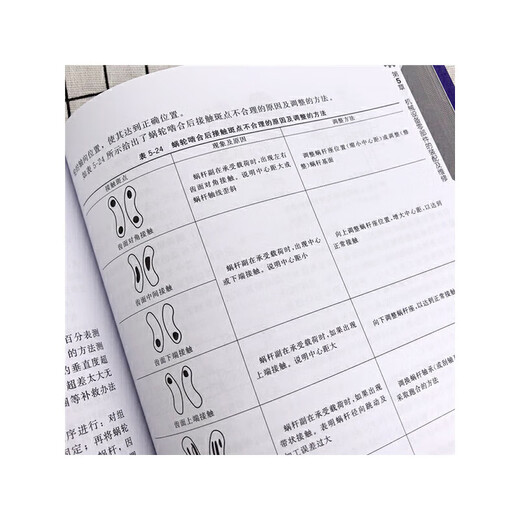 的轴向位置，使其达到正确位置。
如表 5-24 所示给出了蜗轮啮合后接触斑点不合理的原因及调整的方法。
表 5-24 蜗轮啮合后接触斑点不合理的原因及调整的方法
接触斑点
现象及原因
调整方法
齿面对角接触
蜗杆副在承受载荷时，出现左右
齿面对角接触。说明中心距大或
蜗杆轴线歪斜
调整蜗杆座位置(缩小中心距)或调整(修
整)蜗杆基面
齿面中间接触
蜗杆副在承受载荷时，出现中心
或下端接触。说明中心距小
向上调整蜗杆座位置，增大中心距，以达到
正常接触
齿面下端接触
蜗杆副在承受载荷时，如果出现
上端接触。说明中心距大
向下调整蜗杆座，以达正常接触
齿面上端接触
蜗杆副在承受载荷时，如果出现
带状接触。表明蜗杆径向跳动及
加工误差过大
调换蜗杆轴承
采取跑合的方法
第5章
机械设备零部件的装配及维修
百分表测
的方法测
的垂直度超
超差太大无
塌等补救办法
序进行：对组
固定；再将蜗轮
蜗杆，因